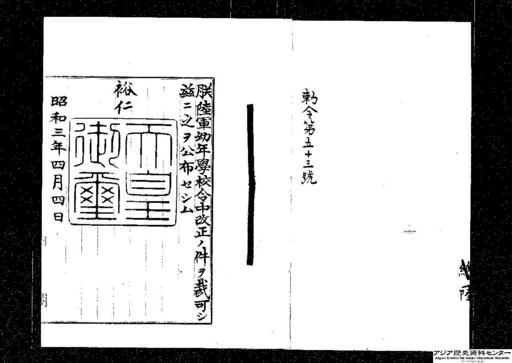 勅令第五十三號
朕陸軍幼年學校令中改正ノ件ヲ裁可シ
茲ニ之ヲ公布セシム
裕仁
天皇
御璽
昭和三年四月四日
アジア歴史資料センター
Japan Center for Asian Historical Records